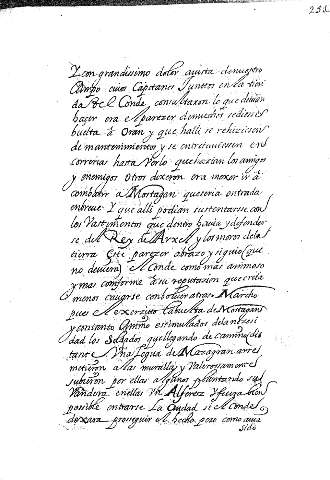 232
Y con grandissimo dolor avista de nuestro
Campo cuios Capitanes Juntos en la tien
da del Conde, consultaron lo que devian
haçer era el parezer de muchos se diesse
buelta à Oran y que halli se rehiziesen
de mantenimientos y se entretuviessen en
correrias hasta verlo que harian los amigos
y enemigos Otros dixeron era mexor ir á
combatir a Mostagan que seria entrada
enbreve Y que alli podian sustentarse con
los Vastimentos que dentro havia y defender
se del Rey de Arxel y los moros de la
tierra Este parezer abrazo y siguio (que
no deviera) el Conde como mas animoso
y mas conforme a su reputacion que era la
menos cargarse con bolver atras Marcho
pues el exerçito la buelta de Mostagan
y con tanto animo estimulados de la neçesi
dad los Soldados que llegando de camino dis
tante Una legua de Mazagran arre
metieron a las murallas y Valerosamente
subieron por ellas algunos plantando su
Vandera en ellas Un Alferez y fuera bien
posible entrarse La Ciudad si el Conde
dexara proseguir el hecho pero como avia
sido